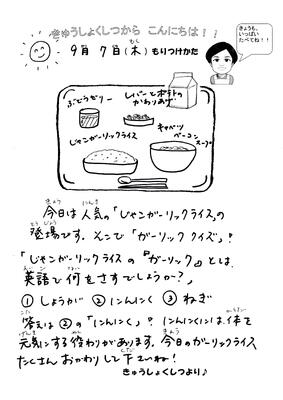 きゅうしょくしつから こんにちは！！
きょうも、
いっぱい
たべてね！！
9月 7日(木) もりつけかた
ぶどうゼリー
レバーとポテトの
かわりあげ
じゃんガーリックライス
キャベツ
ベーコン
スープ
今日は人気の「じゃンガーリックライス」の
登場です。そこで「ガーリック クイズ」！
「じゃンガーリックライスの『ガーリック』とは、
英語で何をさすでしょうか？」
① しょうが ② にんにく ③ ねぎ
答えは ②の「にんにく」！ にんにくには、体を
元気にする働わりがあります。今日のガーリックライス
たくさん おかわりして下さいね！
きゅうしょくしつより♪